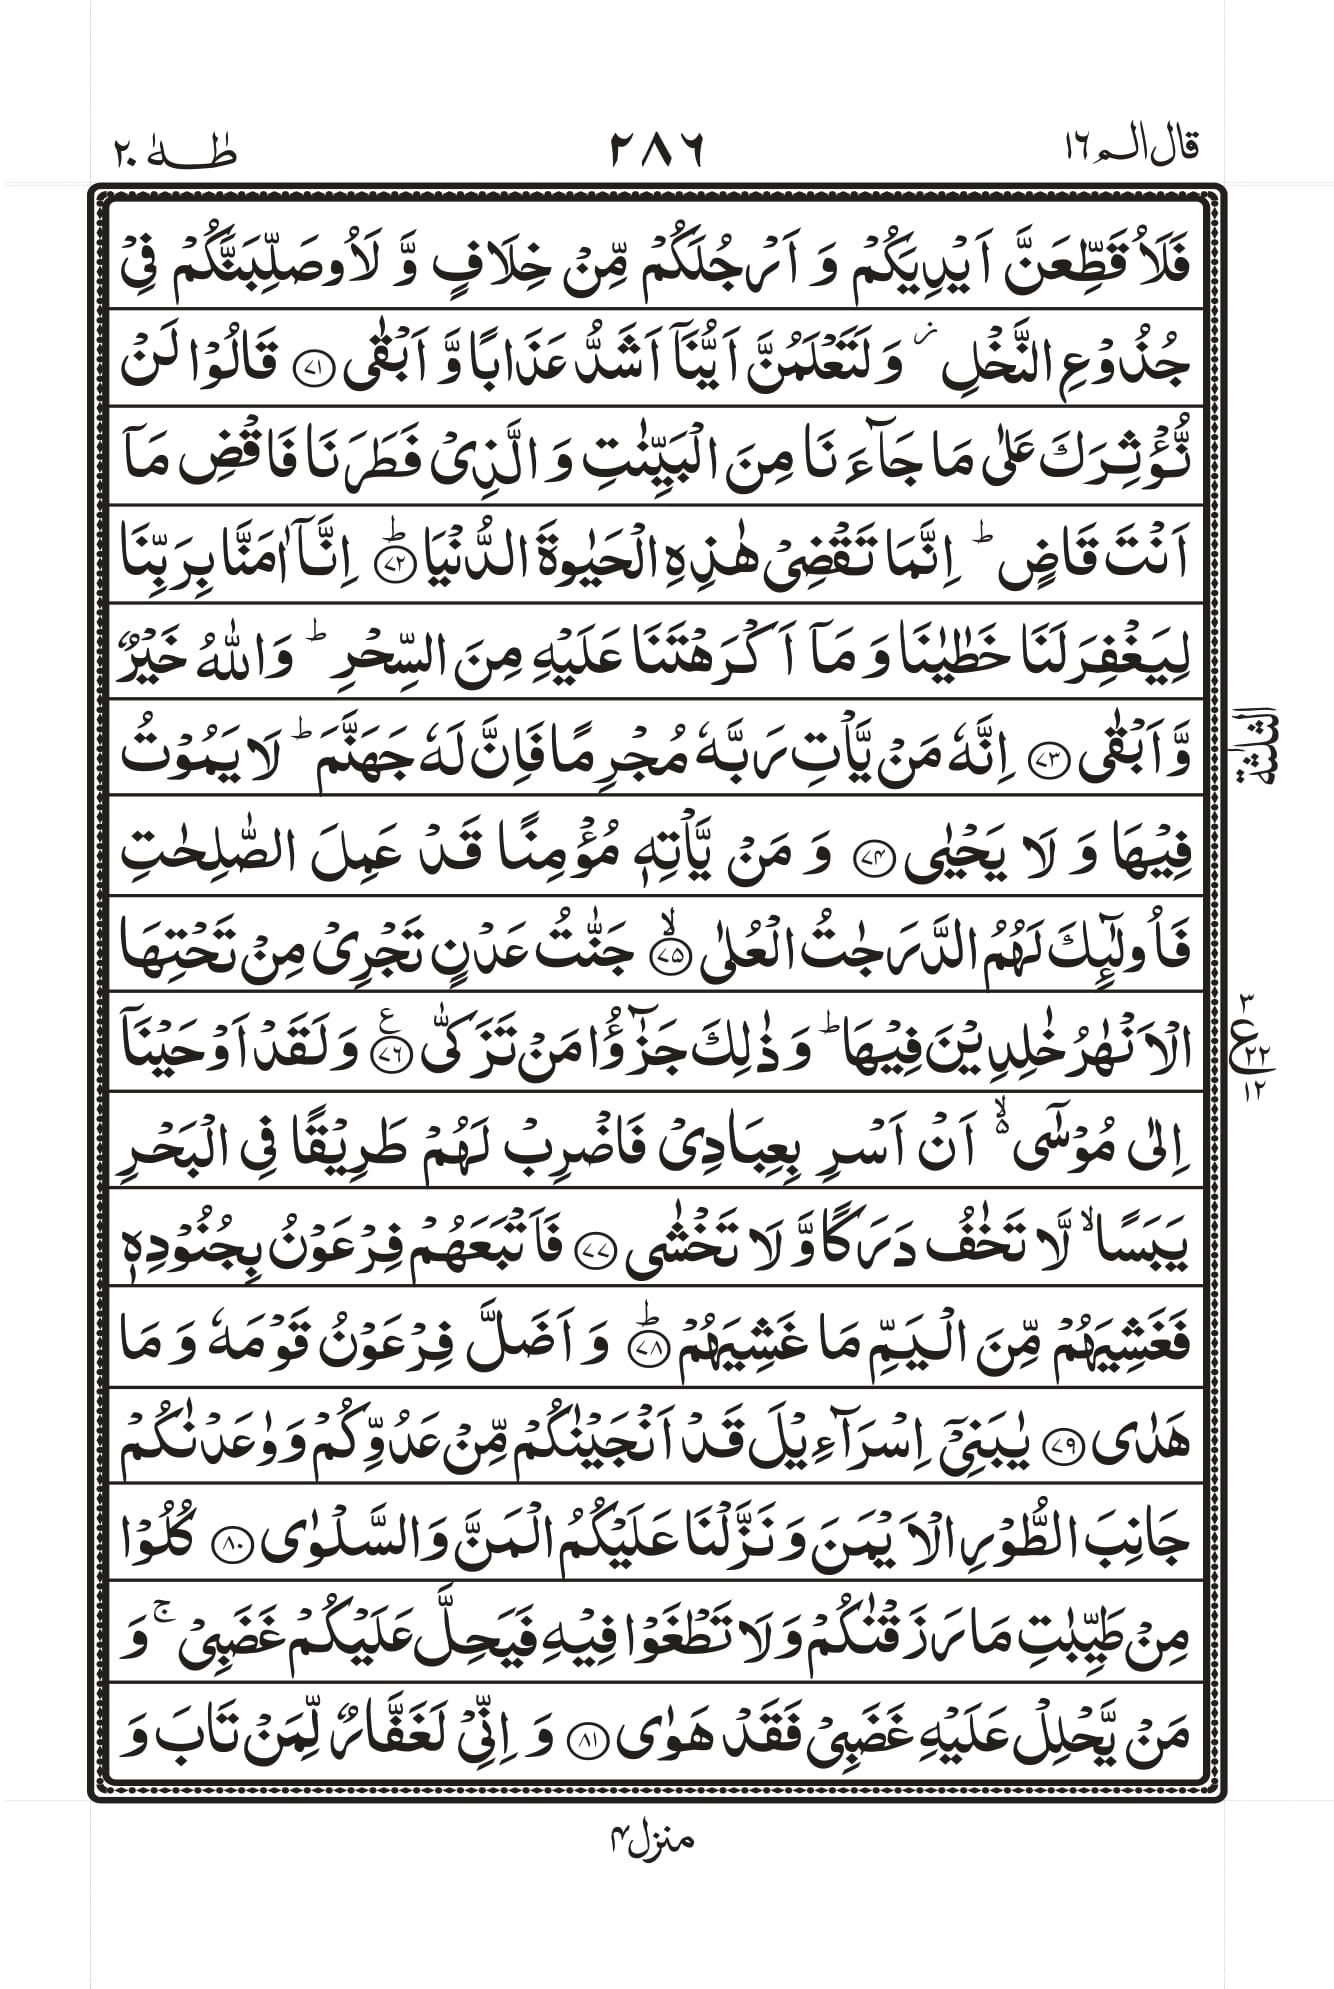 قال الم ١٦
٢٨٦
طٰهٰ ٢٠
فَلَاُقَطِّعَنَّ اَيْدِيَكُمْ وَ اَرْجُلَكُمْ مِّنْ خِلَافٍ وَّ لَاُوصَلِّبَنَّكُمْ فِيْ
جُذُوْعِ النَّخْلِ ز وَلَتَعْلَمُنَّ اَيُّنَاۤ اَشَدُّ عَذَابًا وَّ اَبْقٰى ﴿٧١﴾ قَالُوْا لَنْ
نُّؤْثِرَكَ عَلٰى مَا جَآءَنَا مِنَ الْبَيِّنٰتِ وَ الَّذِيْ فَطَرَنَا فَاقْضِ مَاۤ
اَنْتَ قَاضٍ ؕ اِنَّمَا تَقْضِيْ هٰذِهِ الْحَيٰوةَ الدُّنْيَا ؕ﴿٧٢﴾ اِنَّاۤ اٰمَنَّا بِرَبِّنَا
لِيَغْفِرَ لَنَا خَطٰيٰنَا وَ مَاۤ اَكْرَهْتَنَا عَلَيْهِ مِنَ السِّحْرِ ؕ وَاللّٰهُ خَيْرٌ
وَّ اَبْقٰى ﴿٧٣﴾ اِنَّهٗ مَنْ يَّاْتِ رَبَّهٗ مُجْرِمًا فَاِنَّ لَهٗ جَهَنَّمَ ؕ لَا يَمُوْتُ
الثلثة
فِيْهَا وَ لَا يَحْيٰى ﴿٧٤﴾ وَ مَنْ يَّاْتِهٖ مُؤْمِنًا قَدْ عَمِلَ الصّٰلِحٰتِ
فَاُولٰٓئِكَ لَهُمُ الدَّرَجٰتُ الْعُلٰى ۙ﴿٧٥﴾ جَنّٰتُ عَدْنٍ تَجْرِيْ مِنْ تَحْتِهَا
الْاَنْهٰرُ خٰلِدِيْنَ فِيْهَا ؕ وَ ذٰلِكَ جَزٰٓؤُا مَنْ تَزَكّٰى ﴿٧٦﴾ع وَ لَقَدْ اَوْحَيْنَاۤ
٣ ع ٢٢ ١٢
اِلٰى مُوْسٰۤى ۙ۬ اَنْ اَسْرِ بِعِبَادِيْ فَاضْرِبْ لَهُمْ طَرِيْقًا فِي الْبَحْرِ
يَبَسًا ۙ لَّا تَخٰفُ دَرَكًا وَّ لَا تَخْشٰى ﴿٧٧﴾ فَاَتْبَعَهُمْ فِرْعَوْنُ بِجُنُوْدِهٖ
فَغَشِيَهُمْ مِّنَ الْيَمِّ مَا غَشِيَهُمْ ؕ﴿٧٨﴾ وَ اَضَلَّ فِرْعَوْنُ قَوْمَهٗ وَ مَا
هَدٰى ﴿٧٩﴾ يٰبَنِيْۤ اِسْرَآءِيْلَ قَدْ اَنْجَيْنٰكُمْ مِّنْ عَدُوِّكُمْ وَ وٰعَدْنٰكُمْ
جَانِبَ الطُّوْرِ الْاَيْمَنَ وَ نَزَّلْنَا عَلَيْكُمُ الْمَنَّ وَ السَّلْوٰى ﴿٨٠﴾ كُلُوْا
مِنْ طَيِّبٰتِ مَا رَزَقْنٰكُمْ وَ لَا تَطْغَوْا فِيْهِ فَيَحِلَّ عَلَيْكُمْ غَضَبِيْ ۚ وَ
مَنْ يَّحْلِلْ عَلَيْهِ غَضَبِيْ فَقَدْ هَوٰى ﴿٨١﴾ وَ اِنِّيْ لَغَفَّارٌ لِّمَنْ تَابَ وَ
منزل ۴